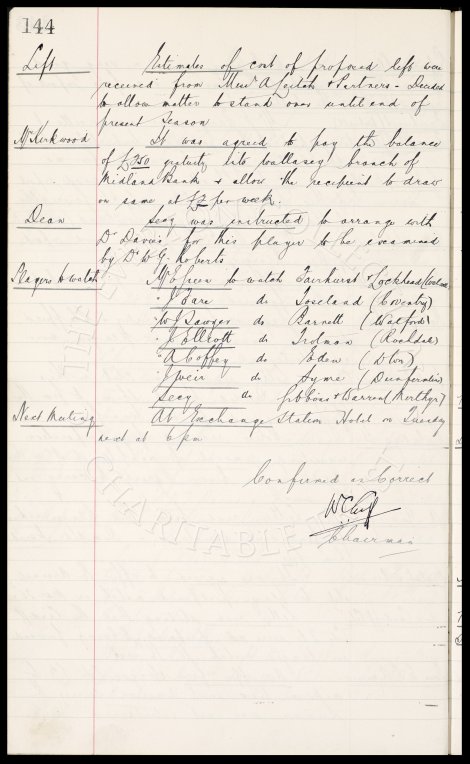 144
Lift Estimates of cost of proposed lift were
received from Messrs A Leitch & Partners - Decided
to allow matter to stand over until end of
present season
Mr Kirkwood It was agreed to pay the balance
of £250 gratuity into Wallasey branch of
Midland Bank & allow the recipient to draw
on same at £2 per week.
Dean Secy was instructed to arrange with
Dr Davies for this player to be examined
by Dr W G Roberts
Players to watch Mr E Green to watch Fairhurst & Lochhead
" J Fare do Toseland (Coventry)
" W J Sawyer do Barnett (Watford)
" J Ellrott do Trotman (Rochdale)
" A Coffey do Eden (Dton)
" J Weir do Syme (Dunfermline)
Secy do Gibbons & Warren (Merthyr)
Next Meeting At Exchange Station Hotel on Tuesday
next at 6 pm
Confirmed as Correct
W C Cuff
Chairman
CHARITABLE